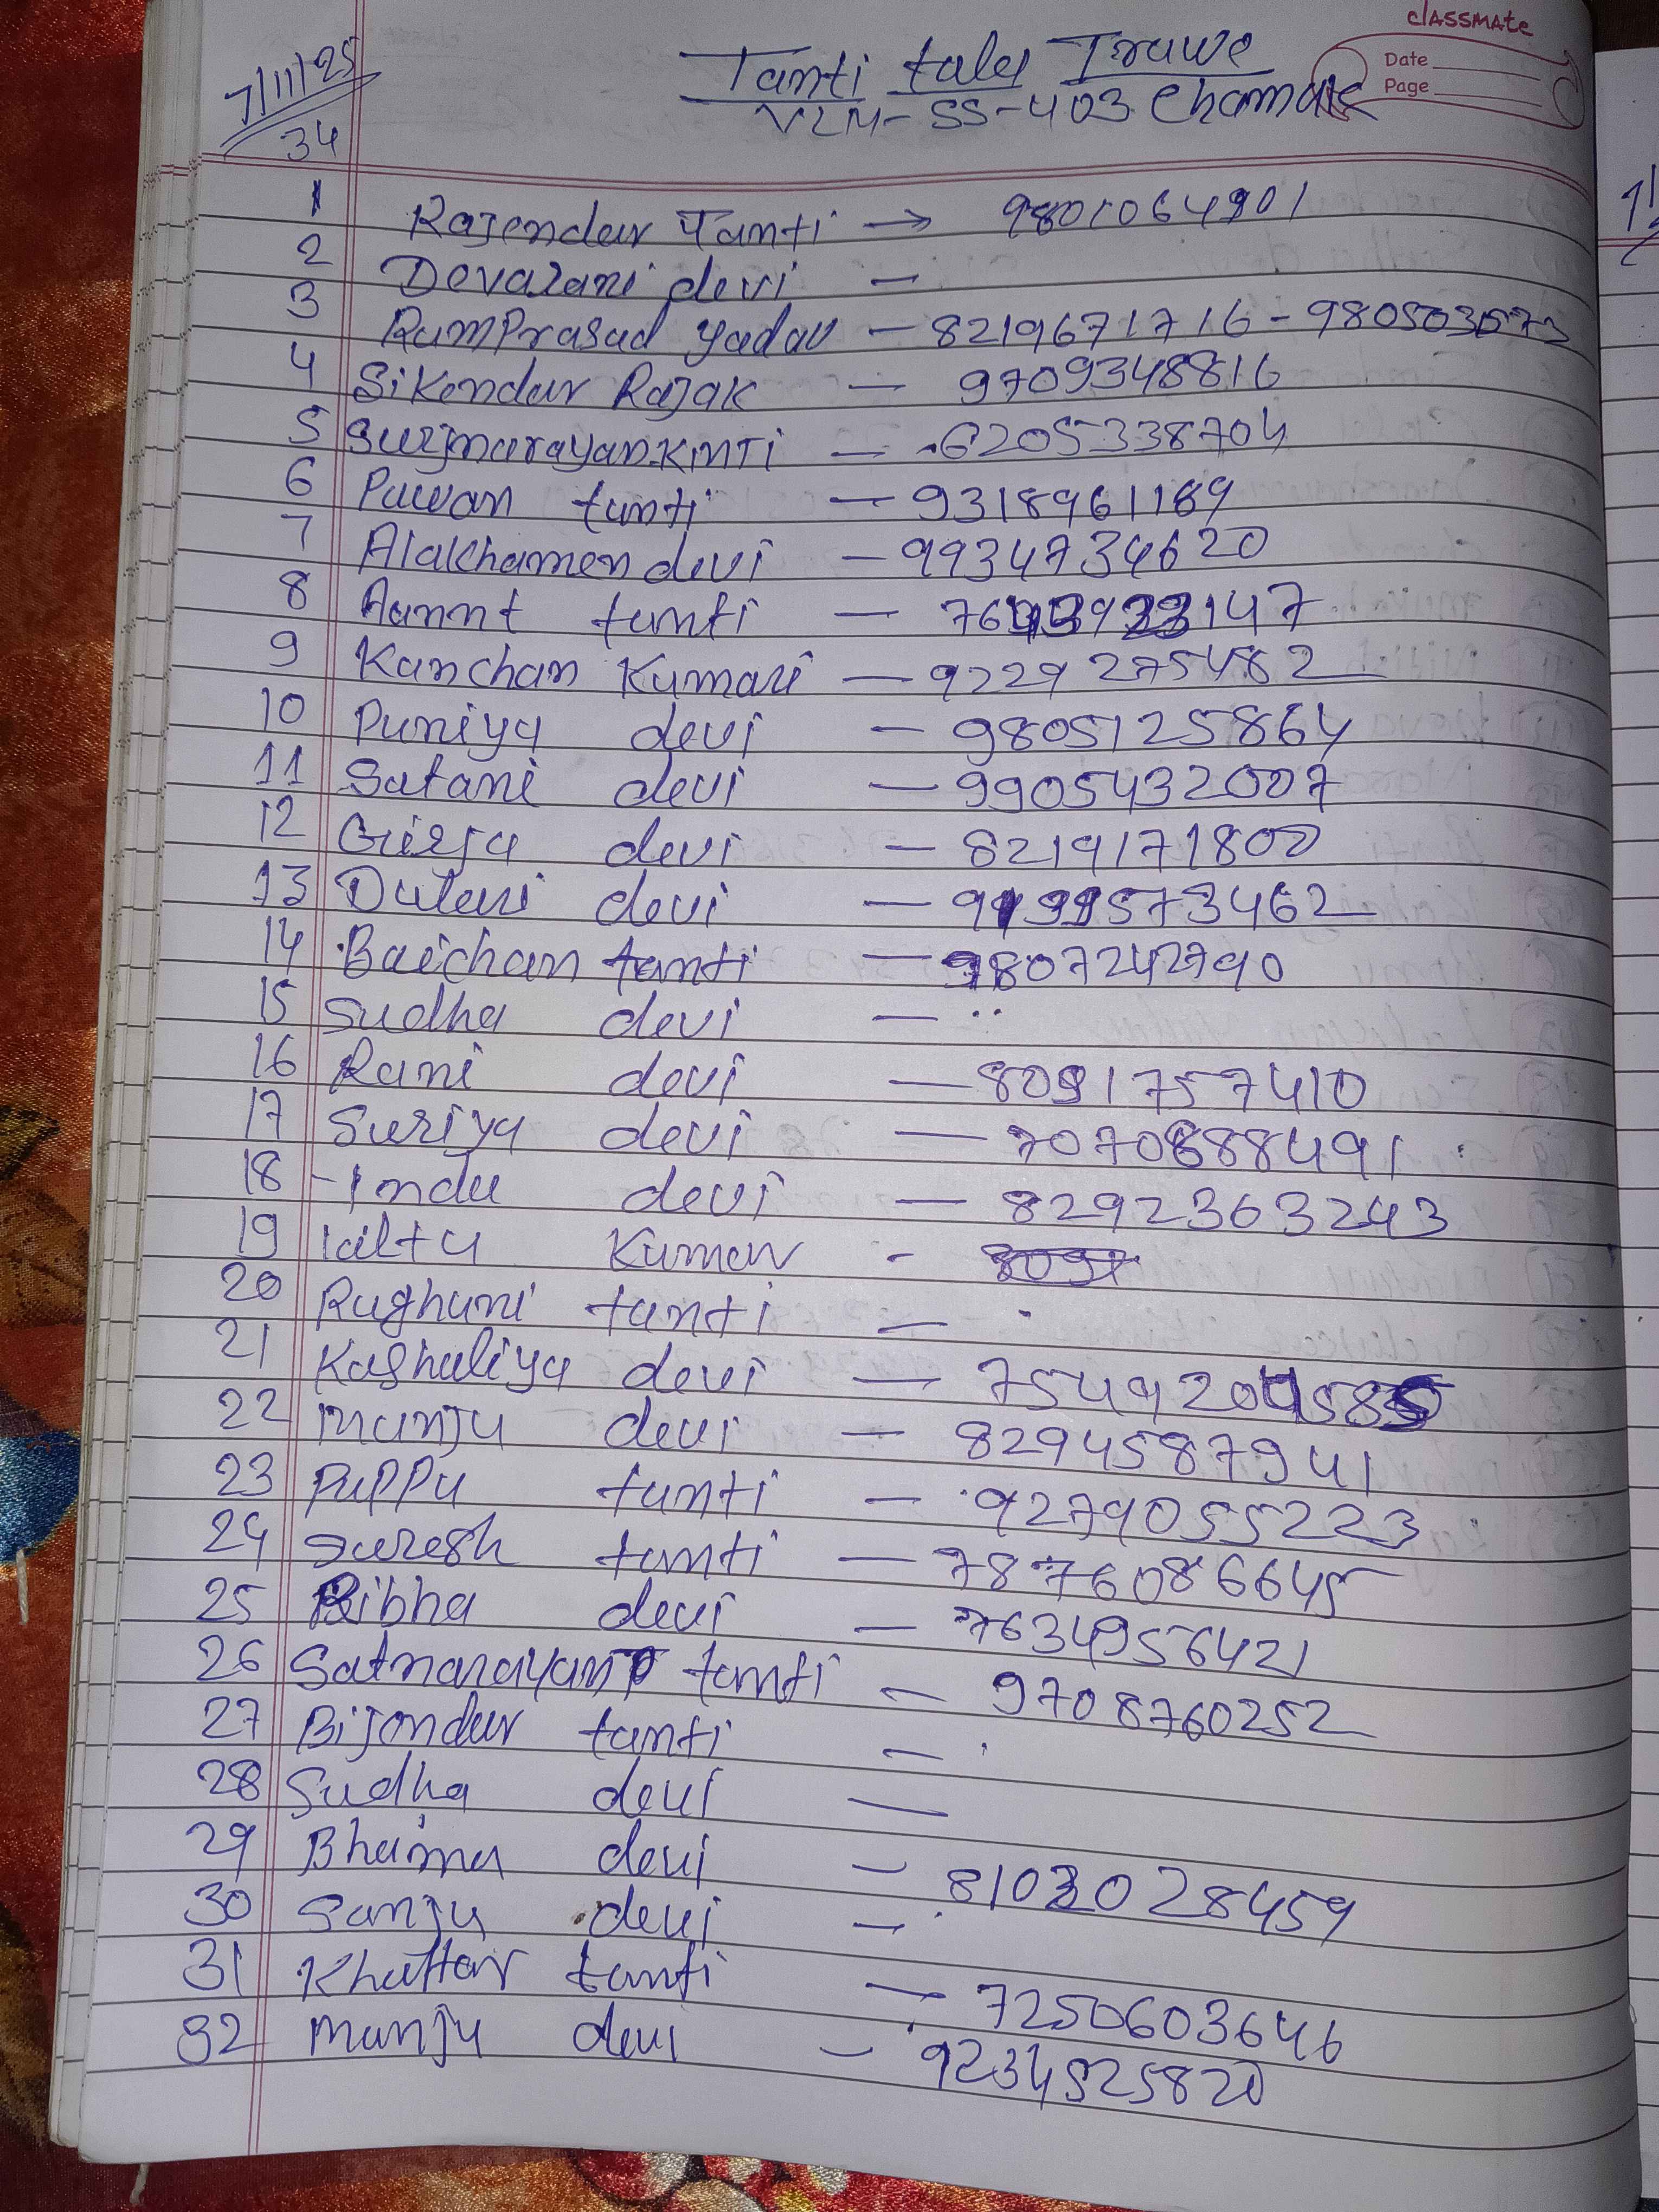 classmate
Date
Page
7/11/25
34
Tanti tales Iruwe
VLM-SS-403 Chamak
1 Rajendar Tanti → 9801064901
2 Devarani devi —
3 RamPrasad yadav — 8219671716 - 980503573
4 Sikendar Rajak — 9709348816
5 Surjnarayan KINTI — 6205338704
6 Pawan tanti — 9318961189
7 Alakhamen devi — 9934734620
8 Aannt tanti —
9 Kanchan Kumari — 9229275482
10 Puniya devi — 9805125864
11 Satani devi — 9905432007
12 Girja devi — 8219171800
13 Dulari devi —
14 Baichan tanti — 9807242790
15 Sudha devi —
16 Rani devi — 8091757410
17 Suriya devi — 7070888491
18 Indu devi — 8292363243
19 laltu Kumar -
20 Rughuni tanti —
21 Kashuliya devi — 7549204585
22 munju devi — 8294587941
23 PuPPu tanti — 9279055223
24 suresh tanti — 7876086645
25 Bibha devi — 7634956421
26 Satnarayan tanti — 9708760252
27 Bijendar tanti —
28 Sudha devi —
29 Bhaima devi — 8103028459
30 Sanju devi —
31 Khattar tanti — 7250603646
32 munju devi — 9234525820